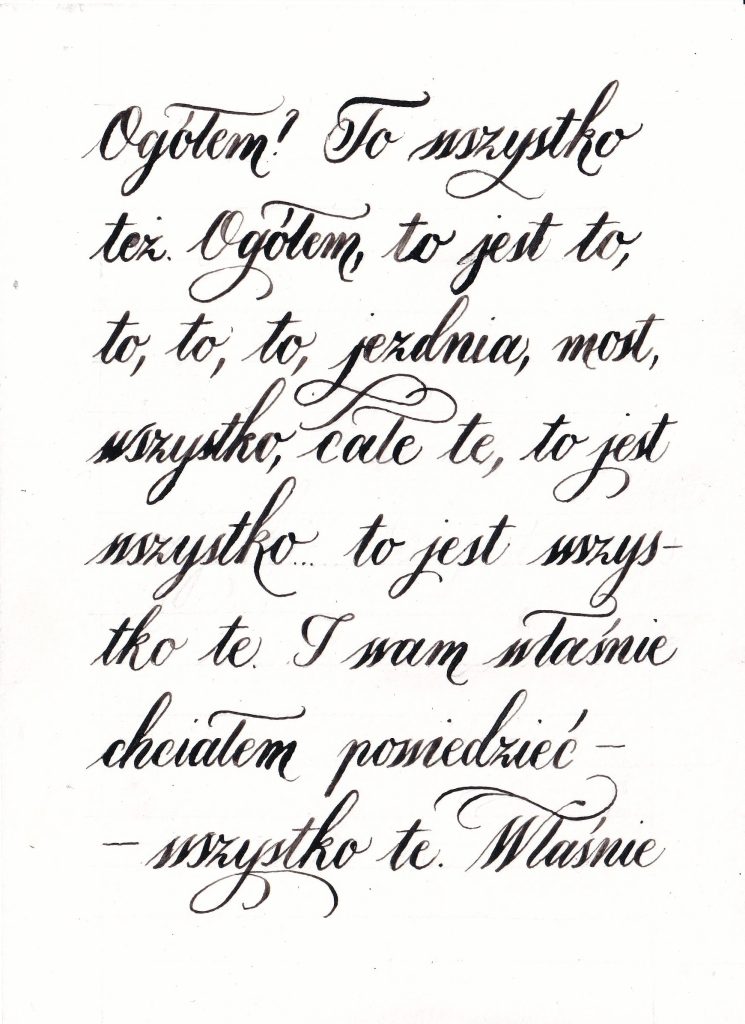 Ogółem? To wszystko
też. Ogółem, to jest to,
to, to, to, jezdnia, most,
wszystko, całe te, to jest
wszystko... to jest wszys-
tko te. I wam właśnie
chciałem powiedzieć -
- wszystko te. Właśnie